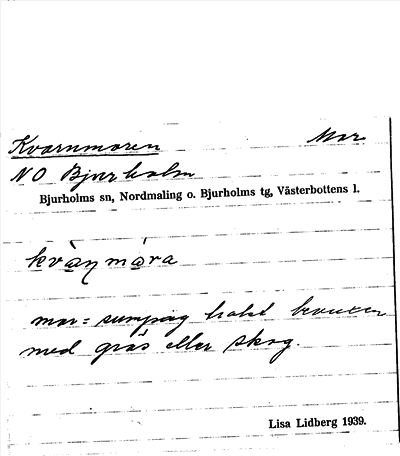 Kvarnmoren Mor
NO Bjurholm
Bjurholms sn, Nordmaling o. Bjurholms tg, Västerbottens l.
kvàṇmára
mor = sumpig trakt bevuxen
med gräs eller skog.
Lisa Lidberg 1939.